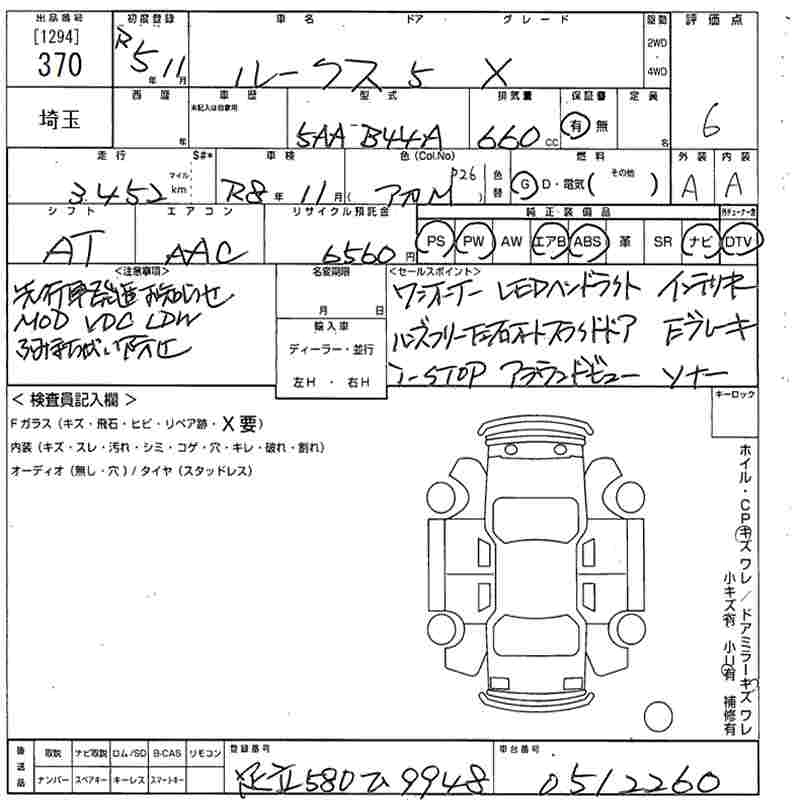 出品番号 初度登録 車名 ドア グレード 駆動 評価点
[1294] 370 R5年11月 ルークス 5 X 2WD・4WD 6
埼玉 西暦 年 車歴 未記入は自家用 型式 排気量 保証書 定員
5AA-B44A 660cc 有 無 名
走行 S#* 車検 色(Col.No) 色替 燃料 外装 内装
3.452 マイル km R8年11月 (アカM P26) G D・電気( その他 ) A A
シフト エアコン リサイクル預託金 純正装備品 別チューナー含
AT AAC 6560円 PS PW AW エアB ABS 革 SR ナビ DTV
<注意事項> 名変期限 <セールスポイント>
MOD VDC LDW
月 日
輸入車
ディーラー・並行
左H ・ 右H
ワンオーナー LEDヘッドライト インテリキー
ハンズフリー左右オートスライドドア Eブレーキ
I-STOP アラウンドビュー ソナー
<検査員記入欄> キーロック
Fガラス(キズ・飛石・ヒビ・リペア跡・X要)
内装(キズ・スレ・汚れ・シミ・コゲ・穴・キレ・破れ・割れ)
オーディオ(無し・穴)/タイヤ(スタッドレス)
ホイル・CPキズ ワレ/ドアミラーキズ ワレ
小キズ有 小U有 補修有
後送品 取説 ナビ取説 ロム/SD B-CAS リモコン 登録番号 車台番号
ナンバー スペアキー キーレス スマートキー 足立580 9948 0512260